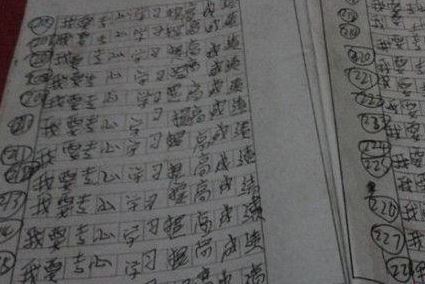 我要专心学习提高成绩
我要专心学习提高成绩
我要专心学习提高成绩
我要专心学习提高成绩
我要专心学习提高成绩
我要专心学习提高成绩
211 我要专心学习提高成绩
212 我要专心学习提高成绩
213 我要专心学习提高成绩
我要专心学习提高成绩
我要专心学习提高成绩
219
220 我
221 我
222 我
223 我
224
225 我
226 我
227 我
228